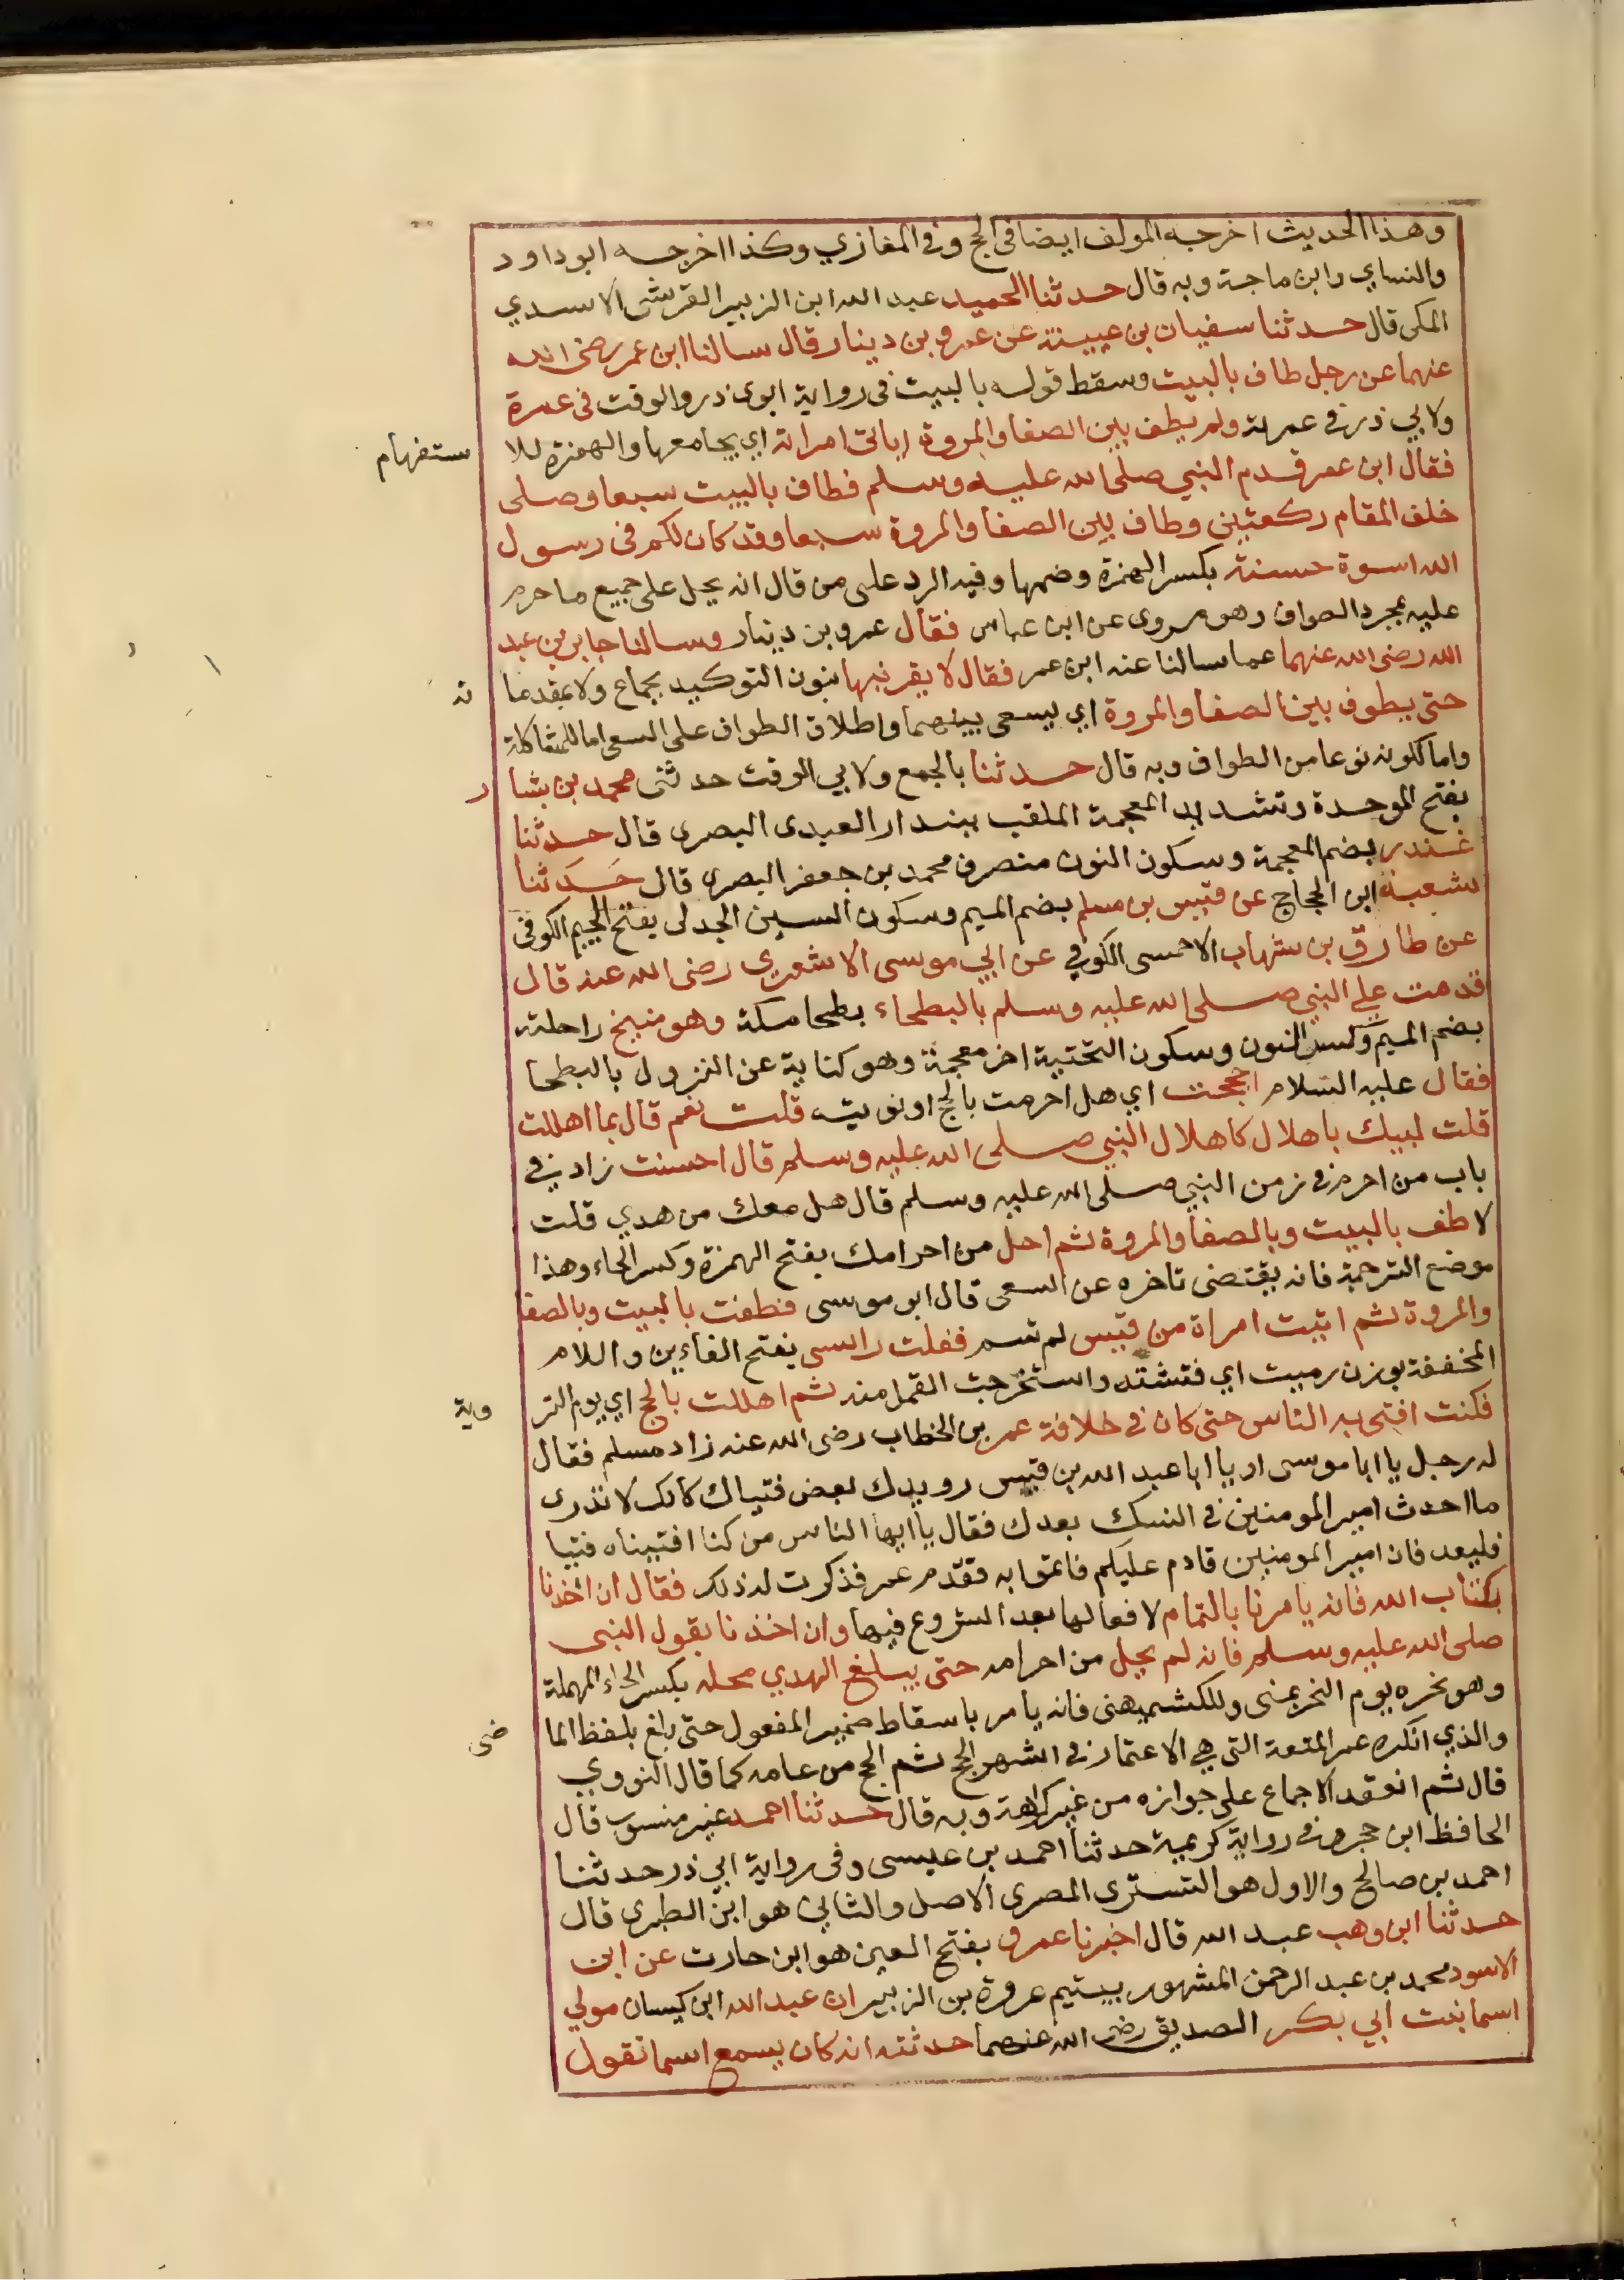 وهذا الحديث اخرجه المولف ايضا في الحج وفي المغازي وكذا اخرجه ابو داود
والنساي وابن ماجة وبه قال حدثنا الحميد عبد الله ابن الزبير القرشي الاسدي
المكي قال حدثنا سفيان بن عيينة عن عمرو بن دينار قال سالنا ابن عمر رضي الله
عنهما عن رجل طاف بالبيت وسقط قوله بالبيت في رواية ابوي ذر والوقت في عمرة
ولابي ذر في عمرته ولم يطف بين الصفا والمروة اياتي امراته اي يجامعها والهمزة للا ستفهام
فقال ابن عمر قدم النبي صلى الله عليه وسلم فطاف بالبيت سبعا وصلى
خلف المقام ركعتين وطاف بين الصفا والمروة سبعا وقد كان لكم في رسول
الله اسوة حسنة بكسر الهمزة وضمها وفيه الرد على من قال انه يحل على جميع ما حرم
عليه بمجرد الطواف وهو مروي عن ابن عباس فقال عمرو بن دينار وسالنا جابر بن عبد
الله رضي الله عنهما عما سالنا عنه ابن عمر فقال لا يقربنها بنون التوكيد بجماع ولا بمقدما ته
حتى يطوف بين الصفا والمروة اي يسعى بينهما واطلاق الطواف على السعي اما للمشاكلة
واما لكونه نوعا من الطواف وبه قال حدثنا بالجمع ولابي الوقت حدثني محمد بن بشا ر
بفتح الموحدة وتشديد المعجمة الملقب ببندار العبدي البصري قال حدثنا
غندر بضم المعجمة وسكون النون منصرف محمد بن جعفر البصري قال حدثنا
شعبة ابن الحجاج عن قيس بن مسلم بضم الميم وسكون السين الجدلي بفتح الجيم الكوفي
عن طارق بن شهاب الاحمسي الكوفي عن ابي موسى الاشعري رضي الله عنه قال
قدمت على النبي صلى الله عليه وسلم بالبطحاء بطحا مكة وهو منيخ راحلته
بضم الميم وكسر النون وسكون التحتية اخر معجمة وهو كناية عن النزول بالبطحا
فقال عليه السلام احججت اي هل احرمت بالحج او نويته قلت نعم قال بما اهللت
قلت لبيك باهلال كاهلال النبي صلى الله عليه وسلم قال احسنت زاد في
باب من احرم في زمن النبي صلى الله عليه وسلم قال هل معك من هدي قلت
لا طف بالبيت وبالصفا والمروة ثم احل من احرامك بفتح الهمزة وكسر الحاء وهذا
موضع الترجمة فانه يقتضى تاخره عن السعي قال ابو موسى فطفت بالبيت وبالصفا
والمروة ثم اتيت امراة من قيس لم تسم ففلت راسي بفتح الفاءين واللام
المخففة بوزن رميت اي فتشته واستخرجت القمل منه ثم اهللت بالحج اي يوم التر وية
فكنت افتي به الناس حتى كان في خلافة عمر بن الخطاب رضي الله عنه زاد مسلم فقال
له رجل يا ابا موسى او يا ابا عبد الله بن قيس رويدك بعض فتياك كانك لا تدري
ما احدث امير المومنين في النسك بعدك فقال يا ايها الناس من كنا افتيناه فتيا
فليعد فان امير المومنين قادم عليكم فاتموا به فقدم عمر فذكرت له ذلك فقال ان اخذنا
بكتاب الله فانه يامرنا بالتمام لافعالها بعد الشروع فيها وان اخذنا بقول النبي
صلى الله عليه وسلم فانه لم يحل من احرامه حتى يبلغ الهدي محله بكسر الحاء المهملة
وهو نحره يوم النحر بمنى وللكشميهني فانه يامر باسقاط ضمير المفعول حتى بلغ بلفظ الما ضي
والذي انكره عمر المتعة التي هي الاعتمار في اشهر الحج ثم الحج من عامه كما قال النووي
قال ثم انعقد الاجماع على جوازه من غير كراهة وبه قال حدثنا احمد غير منسوب قال
الحافظ ابن حجر وفي رواية كريمة حدثنا احمد بن عيسى وفي رواية ابي ذر حدثنا
احمد بن صالح والاول هو التستري المصري الاصل والثاني هو ابن الطبري قال
حدثنا ابن وهب عبد الله قال اخبرنا عمرو بفتح العين هو ابن حارث عن ابي
الاسود محمد بن عبد الرحمن المشهور بيتيم عروة بن الزبير ان عبد الله ابن كيسان مولي
اسما بنت ابي بكر الصديق رضى الله عنهما حدثته انه كان يسمع اسما تقول